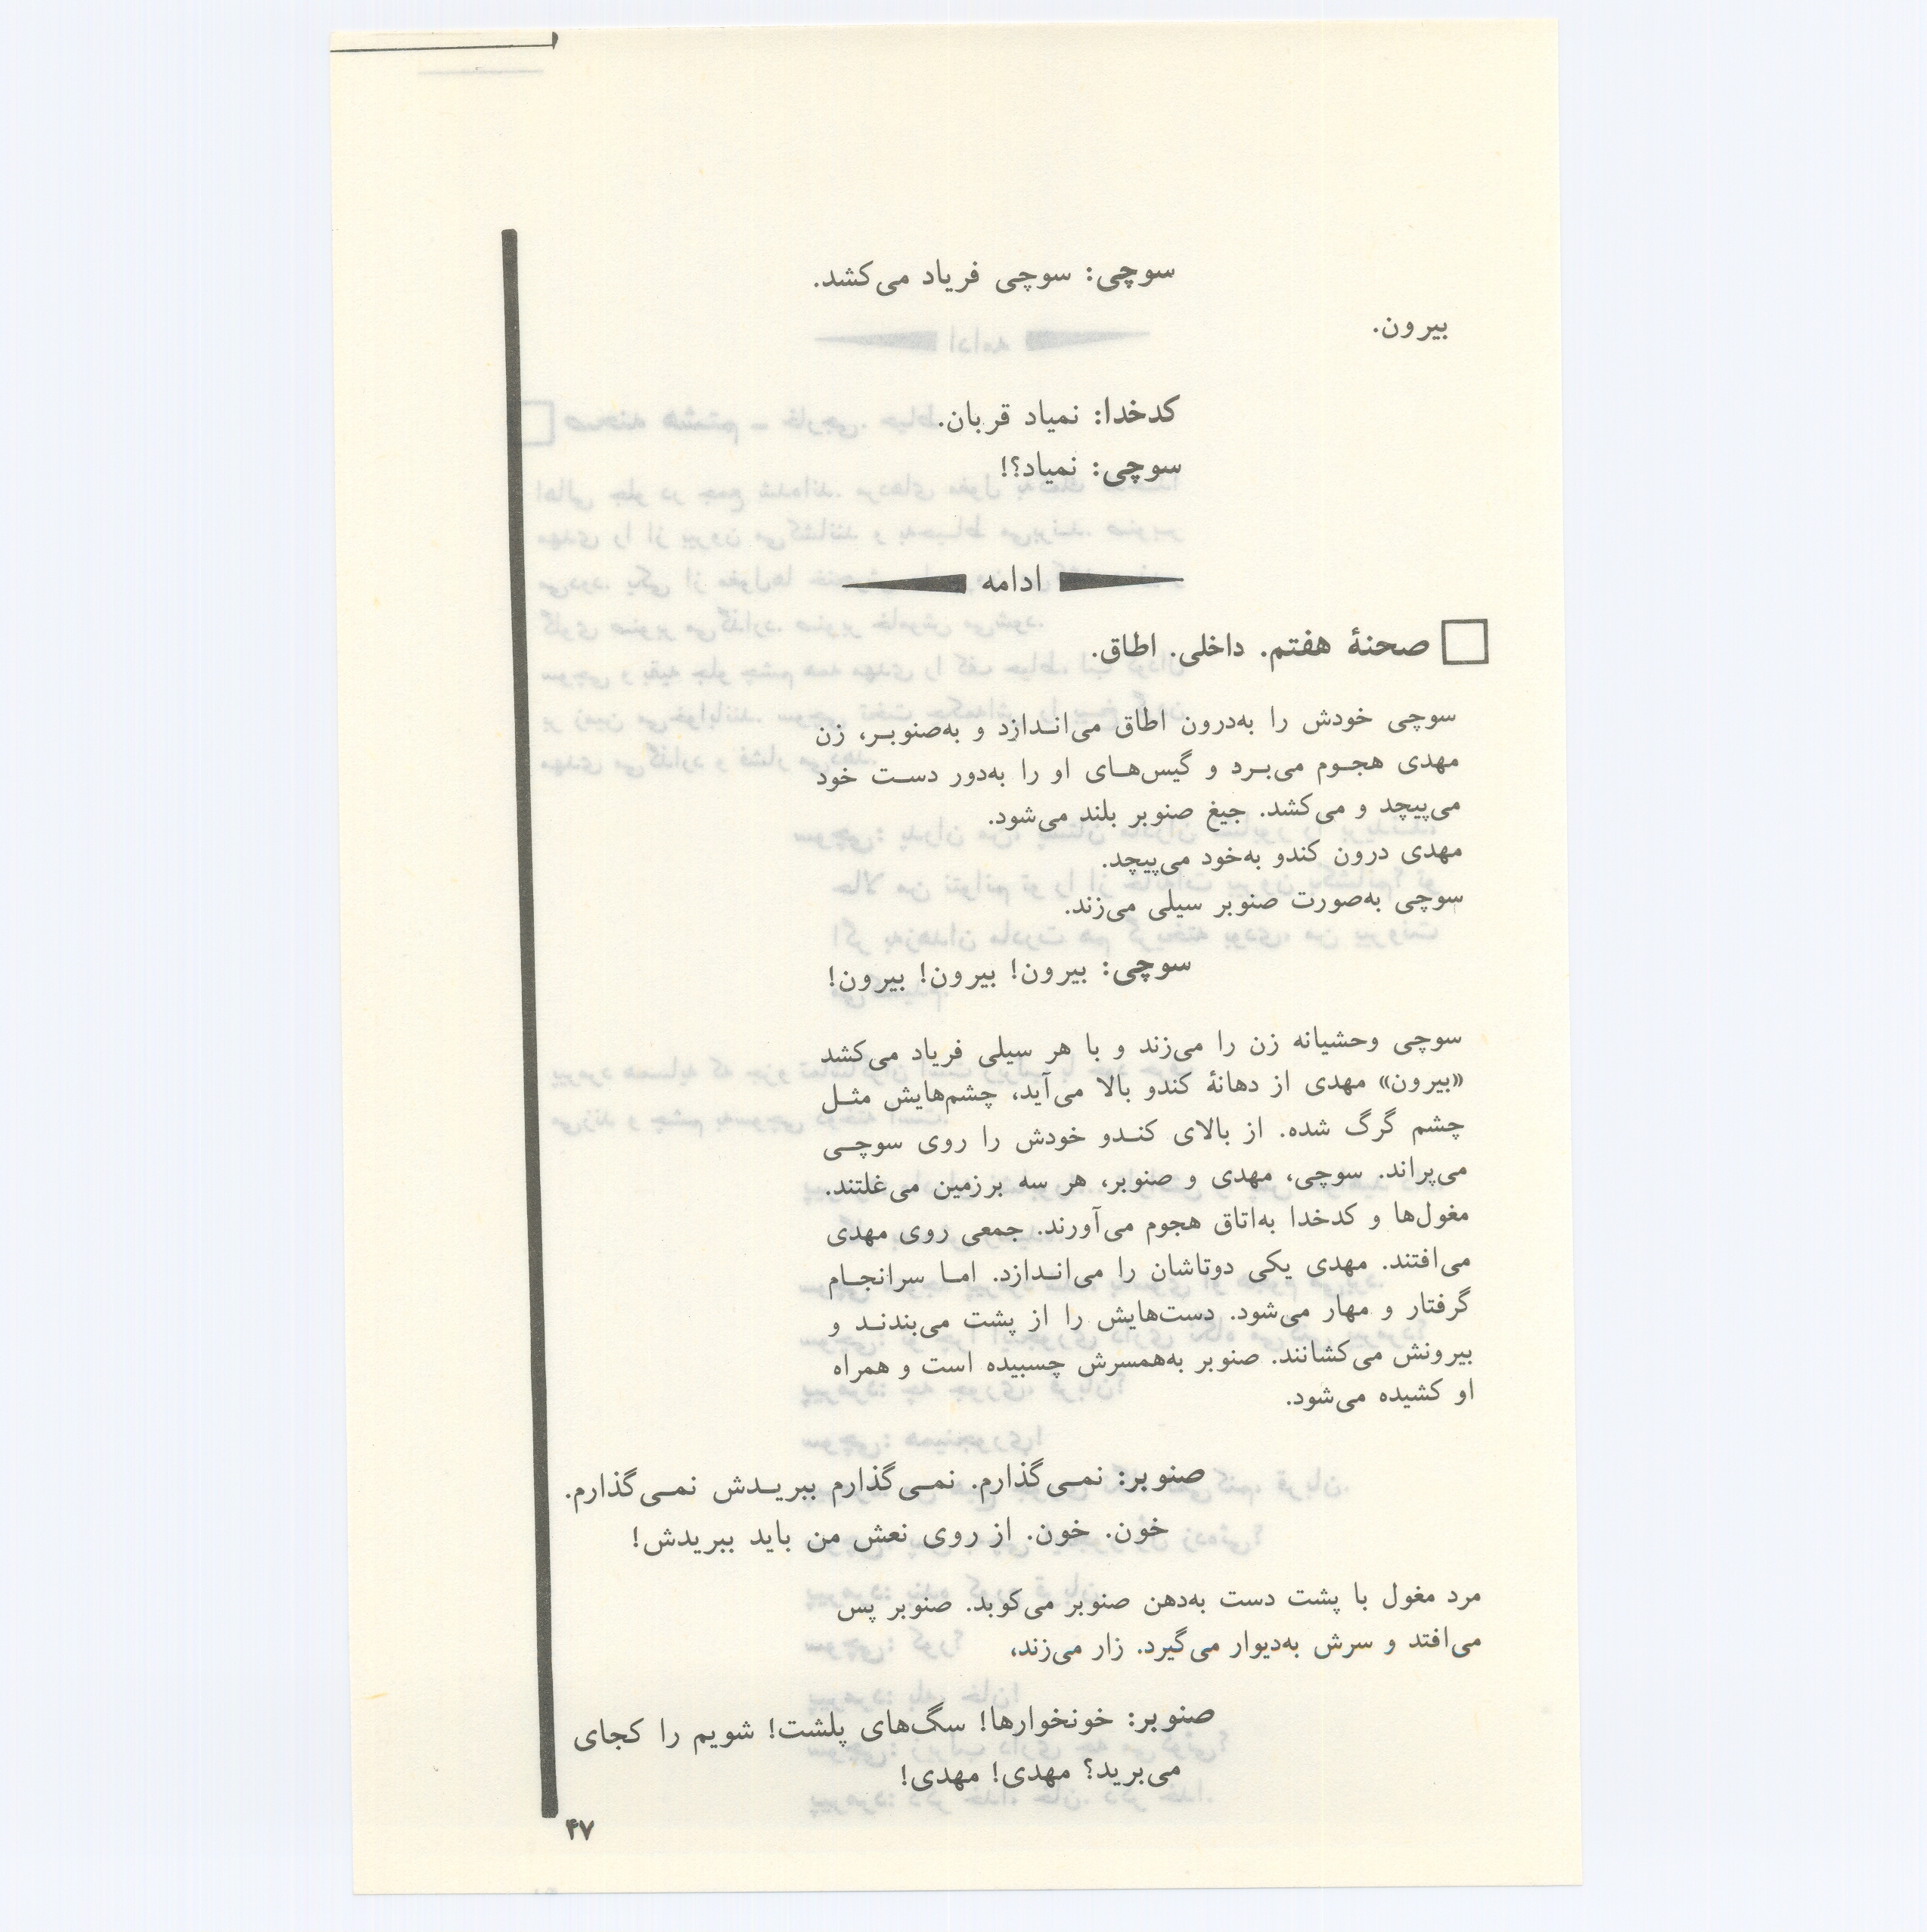 سوچی: سوچی فریاد می‌کشد.
بیرون.
کدخدا: نمیاد قربان.
سوچی: نمیاد؟!
ادامه
صحنهٔ هفتم. داخلی. اطاق.
سوچی خودش را به‌درون اطاق می‌اندازد و به‌صنوبر، زن
مهدی هجوم می‌برد و گیس‌های او را به‌دور دست خود
می‌پیچد و می‌کشد. جیغ صنوبر بلند می‌شود.
مهدی درون کندو به‌خود می‌پیچد.
سوچی به‌صورت صنوبر سیلی می‌زند.
سوچی: بیرون! بیرون! بیرون!
سوچی وحشیانه زن را می‌زند و با هر سیلی فریاد می‌کشد
«بیرون» مهدی از دهانهٔ کندو بالا می‌آید، چشم‌هایش مثل
چشم گرگ شده. از بالای کندو خودش را روی سوچی
می‌پراند. سوچی، مهدی و صنوبر، هر سه برزمین می‌غلتند.
مغول‌ها و کدخدا به‌اتاق هجوم می‌آورند. جمعی روی مهدی
می‌افتند. مهدی یکی دوتاشان را می‌اندازد. اما سرانجام
گرفتار و مهار می‌شود. دست‌هایش را از پشت می‌بندند و
بیرونش می‌کشانند. صنوبر به‌همسرش چسبیده است و همراه
او کشیده می‌شود.
صنوبر: نمی‌گذارم. نمی‌گذارم ببریدش نمی‌گذارم.
خون. خون. از روی نعش من باید ببریدش!
مرد مغول با پشت دست به‌دهن صنوبر می‌کوبد. صنوبر پس
می‌افتد و سرش به‌دیوار می‌گیرد. زار می‌زند،
صنوبر: خونخوارها! سگ‌های پلشت! شویم را کجای
می‌برید؟ مهدی! مهدی!
۴۷